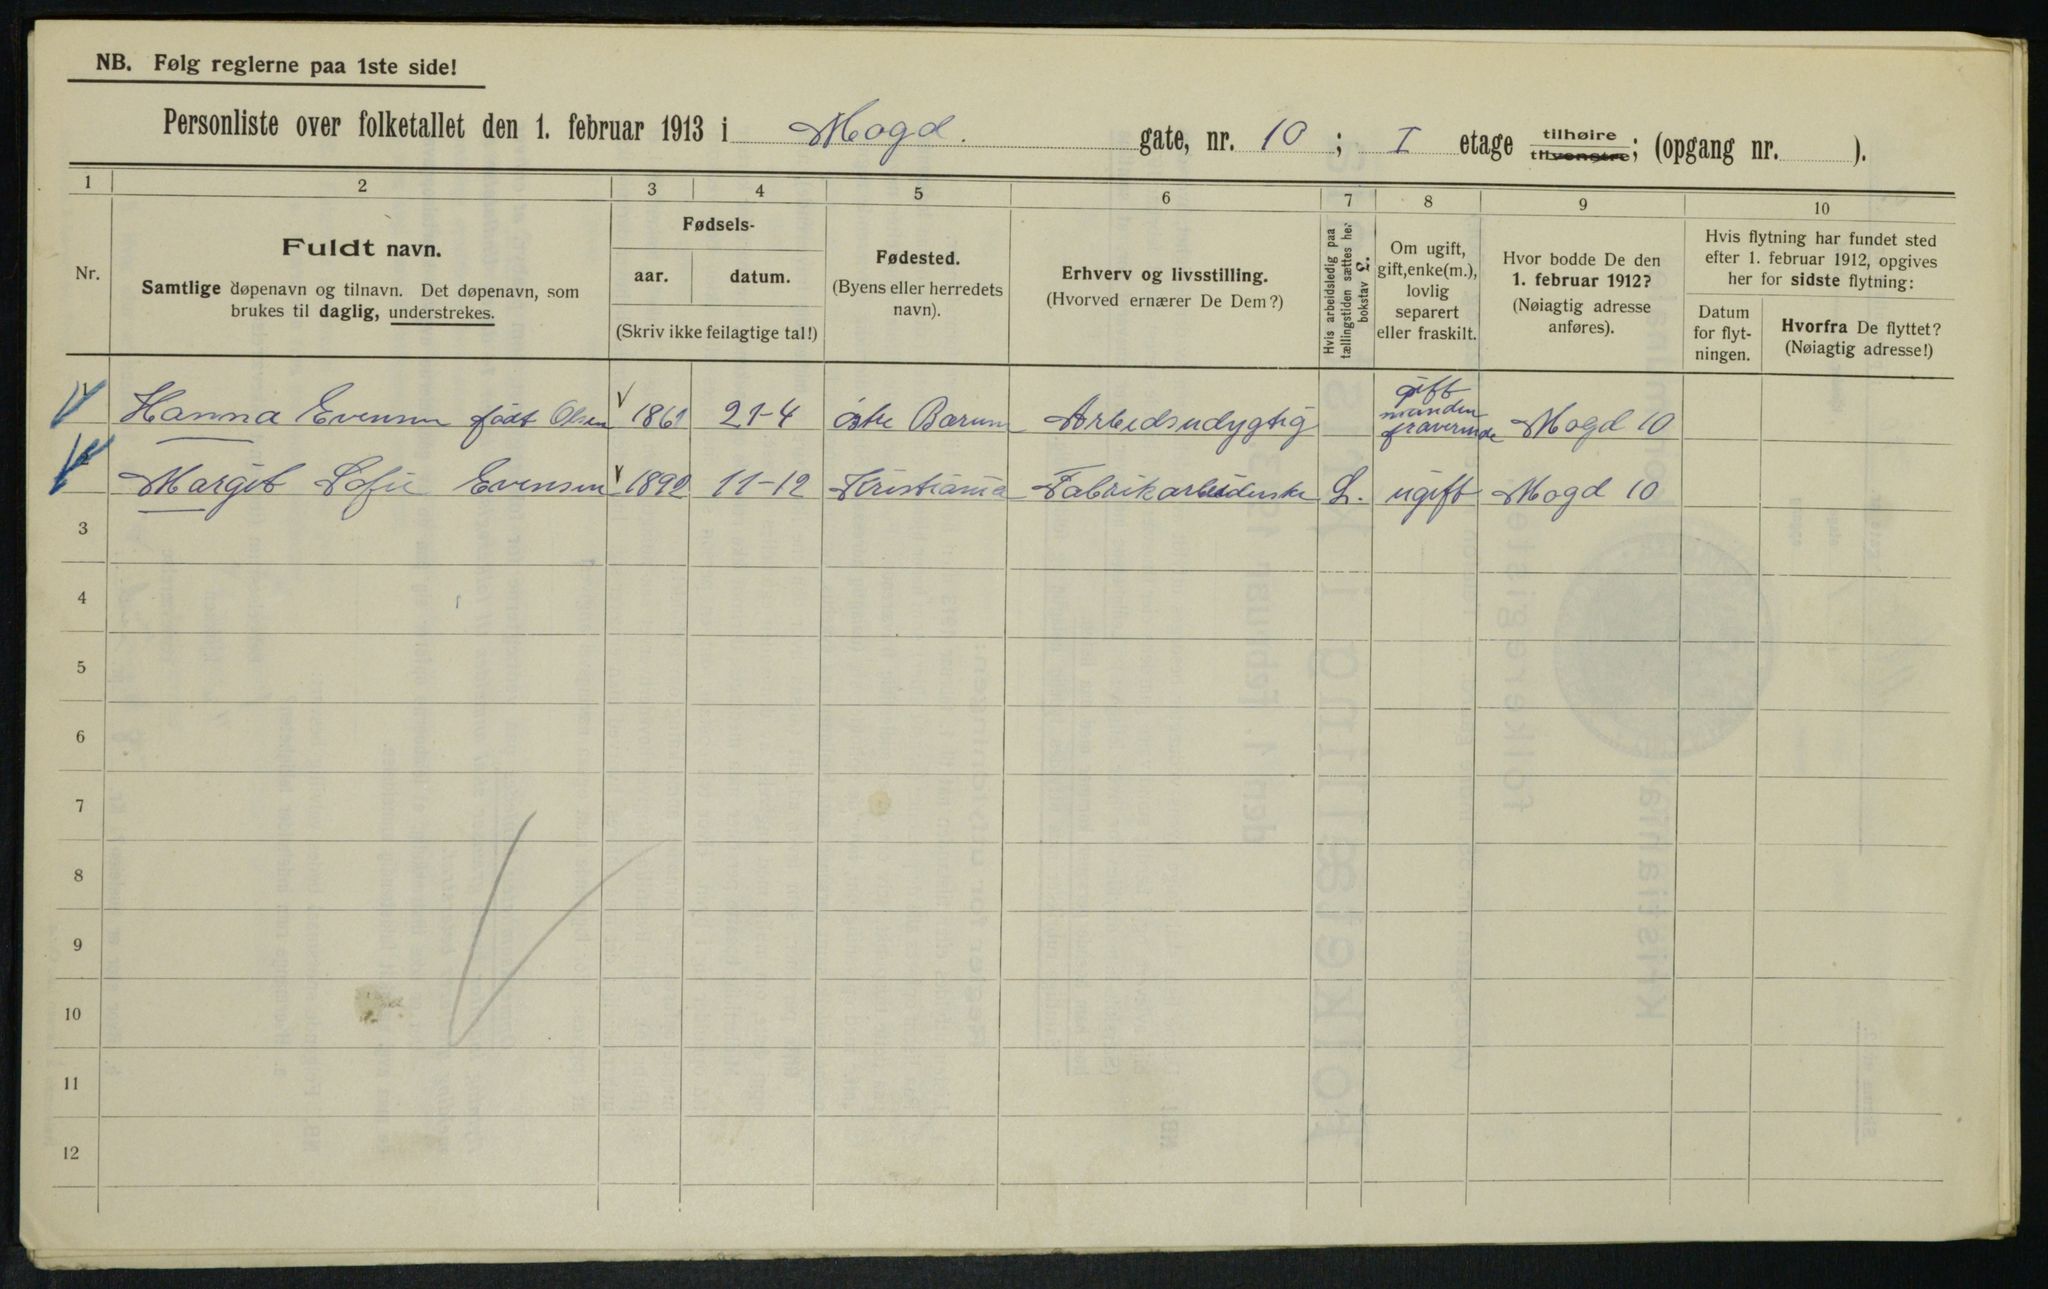 NB. Følg reglerne paa 1ste side!
Personliste over folketallet den 1. februar 1913 i Mogd. gate, nr. 10 ; I etage tilhøire tilvenstre; (opgang nr. ).
1 2 3 4 5 6 7 8 9 10
Nr.
Fuldt navn.
Samtlige døpenavn og tilnavn. Det døpenavn, som
brukes til daglig, understrekes.
Fødsels-
aar. datum.
(Skriv ikke feilagtige tal!)
Fødested.
(Byens eller herredets
navn).
Erhverv og livsstilling.
(Hvorved ernærer De Dem?)
Hvis arbeidsledig paa
tællingstiden sættes her
bokstav L.
Om ugift,
gift, enke(m.),
lovlig
separert
eller fraskilt.
Hvor bodde De den
1. februar 1912?
(Nøiagtig adresse
anføres).
Hvis flytning har fundet sted
efter 1. februar 1912, opgives
her for sidste flytning:
Datum
for flyt-
ningen.
Hvorfra De flyttet?
(Nøiagtig adresse!)
1 Hanna Evensen født Olsen 1861 21-4 østre Bærum Arbeidsudygtig gift manden fraværende Mogd 10
2 Margit Sofie Evensen 1892 11-12 Kristiania Fabrikarbeiderske L. ugift Mogd 10
3
4
5
6
7
8
9
10
11
12